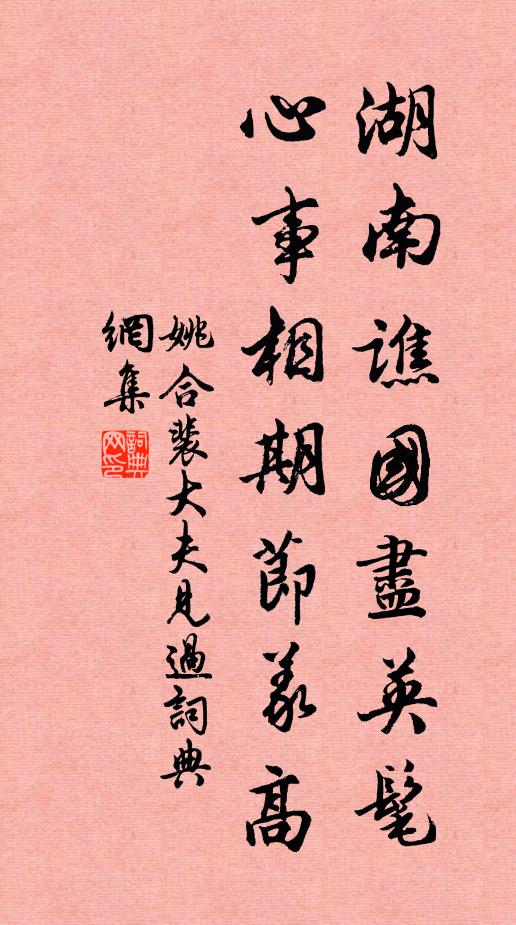 湖南譙國盡英髦
心事相期節義高
姚合裴大夫見過詞典
網集
詞典網印